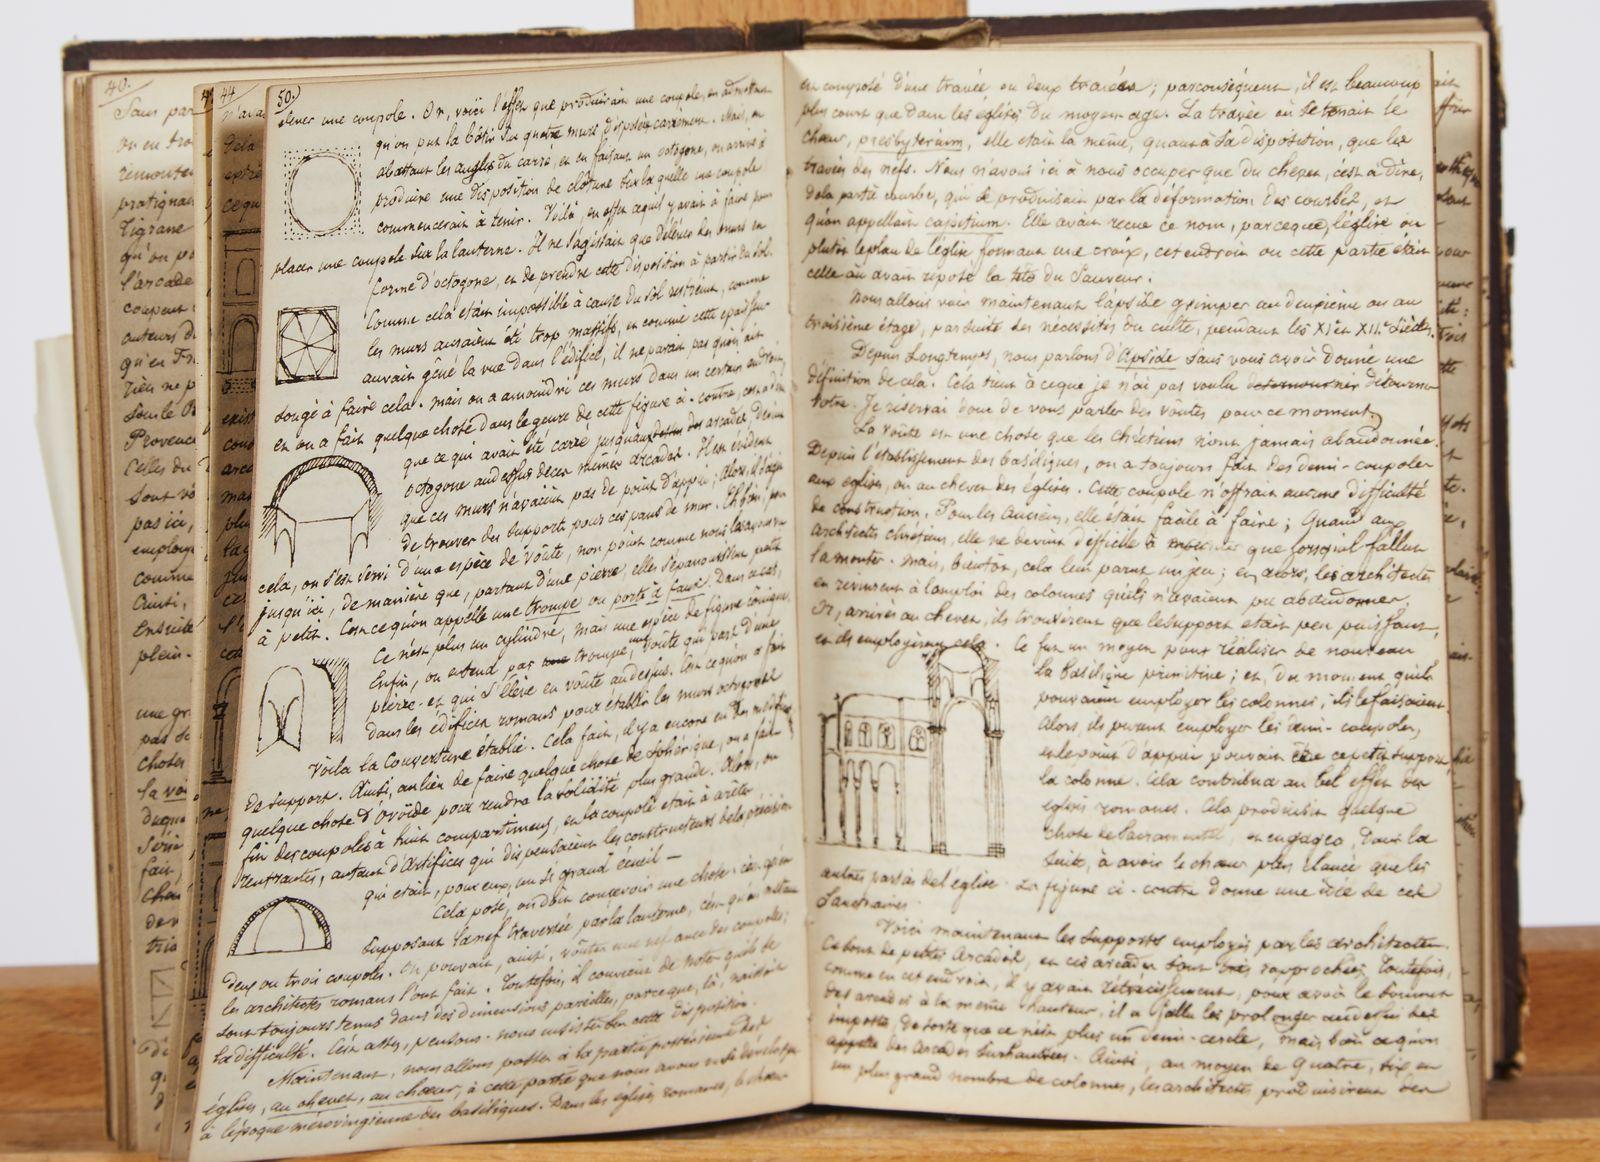 50.)
élever une coupole. Or, voici l'effet que produirait une coupole, en admettant
qu'on put la bâtir sur quatre murs disposés carrément. Mais, en
abattant les angles du carré, et en faisant un octogone, on arrive à
produire une disposition de clôture sur laquelle une coupole
commencerait à tenir. Voilà, en effet ce qu'il y avait à faire pour
placer une coupole sur la lanterne. Il ne s'agissait que d'élever des murs en
forme d'octogone, et de prendre cette disposition à partir du sol.
Comme cela était impossible à cause du sol restreint, comme
les murs auraient été trop massifs, et comme cette épaisseur
aurait gêné la vue dans l'édifice, il ne parait pas qu'on ait
songé à faire cela. Mais on a amoindri ces murs dans un certain endroit,
et on a fait quelque chose dans le genre de cette figure ci-contre, c'est-à-dire
que ce qui avait été carré jusqu'aux des arcades, devint
octogone au dessus de ces mêmes arcades. Il est évident
que ces murs n'avaient pas de point d'appui; Alors, il s'agit
de trouver des supports pour ces pans de mur. Eh bien, pour
cela, on s'est servi d'une espèce de voûte, non point comme nous l'avons vu
jusqu'ici, de manière que, partant d'une pierre, elle s'épanouisse petit
à petit. C'est ce qu'on appelle une trompe ou porte à faux. Dans ce cas,
Ce n'est plus un cylindre, mais une espèce de figure cônique.
Enfin, on entend par trompe, une voûte qui part d'une
pierre et qui s'élève en voûte au dessus. C'est ce qu'on a fait
dans les édifices romans pour établir les murs octogones
Voila la Couverture établie. Cela fait, il y a encore eu des modes
de support. Ainsi, au lieu de faire quelque chose de sphérique, on a fait
quelque chose d'Ovoïde pour rendre la solidité plus grande. Alors, on
fit des coupoles à huit compartimens, et la coupole était à arêtes
rentrantes, autant d'Artifices qui dispensaient les constructeurs de la précision
qui était, pour eux, un si grand écueil —
Cela posé, on doit concevoir une chose: c'est qu'en
supposant la nef traversée par la lanterne, c'est qu'on obtint
deux ou trois coupoles. On pouvait, ainsi, voûter une nef avec des coupoles;
les architectes romans l'ont fait. Toutefois, il convient de noter qu'ils se
sont toujours tenus dans des dimensions pareilles, parce que, là, naissait
la difficulté. C'est assez, pensons-nous insister sur cette disposition.
Maintenant, nous allons passer à la partie postérieure des
églises, au chevet, au chœur, à cette partie que nous avons vu se développer
à l'époque mérovingienne des basiliques. Dans les églises romanes, le chœur
est composé d'une travée, ou deux travées; parconséquent, il est beaucoup
plus court que dans les églises du moyen age. La travée où se tenait le
chœur, presbyterium, elle était la même, quant à sa disposition, que les
travées des nefs. Nous n'avons ici à nous occuper que du chevet, c'est à dire,
de la partie courbe, qui se produisait par la déformation des courbes, et
qu'on appellait capitium. Elle avait reçue ce nom, parceque, l'église ou
plutôt le plan de l'église formant une croix, cet endroit ou cette partie était
celle où avait reposé la tête du Sauveur.
Nous allons voir maintenant l'apside grimper au deuxième ou au
troisième étage, par suite des nécessités du culte, pendant les XIe et XIIe siècles.
Depuis Longtemps, nous parlons d'Apside sans vous avoir donné une
définition de cela. Cela tient à ceque je n'ai pas voulu détourner
votre. Je réservai donc de vous parler des voûtes pour ce moment.
La voûte est une chose que les chrétiens n'ont jamais abandonnée.
Depuis l'établissement des basiliques, on a toujours fait des demi-coupoles
aux églises, ou au chevet des églises. Cette coupole n'offrait aucune difficulté
de construction. Pour les Anciens, elle était facile à faire; Quant aux
architectes chrétiens, elle ne devint difficile à que lorsqu'il fallut
la monter. Mais, bientôt, cela leur parut un jeu; et, alors, les architectes
en revinrent à l'emploi des colonnes qu'ils n'avaient pu abandonner.
Or, arrivés au chevet, ils trouvèrent que le support était peu puissant,
et ils employèrent cela. Ce fut un moyen pour réaliser de nouveau
la basilique primitive; et, du moment qu'ils
pouvaient employer les colonnes, ils le faisaient.
Alors, ils purent employer les demi-coupoles,
et le point d'appui pouvait être ce petit support,
la colonne. Cela contribua au bel effet des
églises romanes. Cela produisit quelque
chose de Sacramentel, et engagea, dans la
suite, à avoir le chœur plus élancé que les
autres parties de l'église. La figure ci-contre donne une idée de ces
Sanctuaires.
Voici maintenant les supports employés par les architectes.
Ce sont de petites Arcades, et ces arcades sont très rapprochées. Toutefois,
comme en cet endroit, il y avait rétrécissement, pour avoir le sommet
des arcades à la même hauteur, il a fallu les prolonger au dessus des
impostes, de sorte que ce n'est plus un demi-cercle, mais bien ce qu'on
appelle des Arcades Surhaussées. Ainsi, au moyen de quatre, six ou
un plus grand nombre de colonnes, les architectes produisirent des
40.
Sans par
44